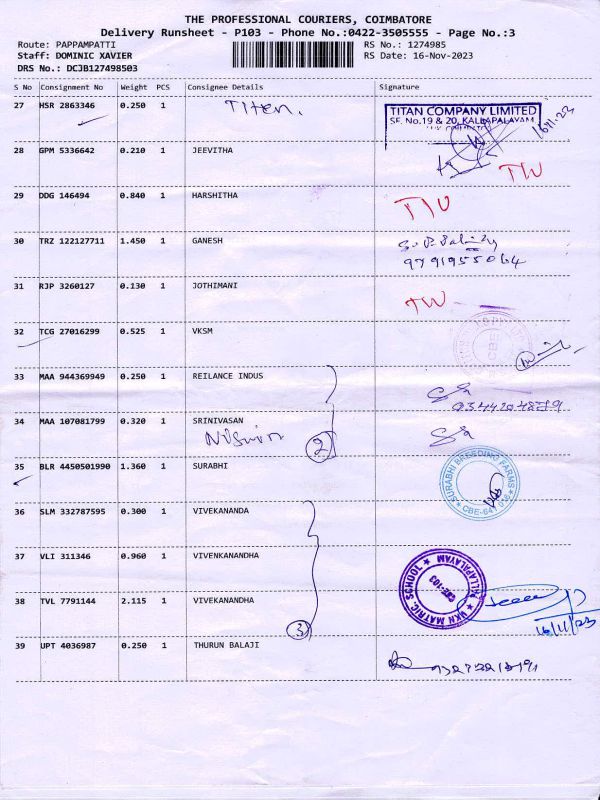 THE PROFESSIONAL COURIERS, COIMBATORE
Delivery Runsheet - P103 - Phone No.:0422-3505555 - Page No.:3
Route: PAPPAMPATTI RS No.: 1274985
Staff: DOMINIC XAVIER RS Date: 16-Nov-2023
DRS No.: DCJB127498503
S No Consignment No Weight PCS Consignee Details Signature
27 HSR 2863346 0.250 1 Titen.
TITAN COMPANY LIMITED
SF. No.19 & 20, KALLAPALAYAM
16/11/23
28 GPM 5336642 0.210 1 JEEVITHA
29 DDG 146494 0.840 1 HARSHITHA
30 TRZ 122127711 1.450 1 GANESH
9791955064
31 RJP 3260127 0.130 1 JOTHIMANI
32 TCG 27016299 0.525 1 VKSM
33 MAA 944369949 0.250 1 REILANCE INDUS
34 MAA 107081799 0.320 1 SRINIVASAN
2
35 BLR 4450501990 1.360 1 SURABHI
SURABHI BREEDING FARMS
36 SLM 332787595 0.300 1 VIVEKANANDA
37 VLI 311346 0.960 1 VIVENKANANDHA
38 TVL 7791144 2.115 1 VIVEKANANDHA
VKN MATRIC. SCHOOL KALLAPALAYAM
CBE-103
3
16/11/23
39 UPT 4036987 0.250 1 THURUN BALAJI